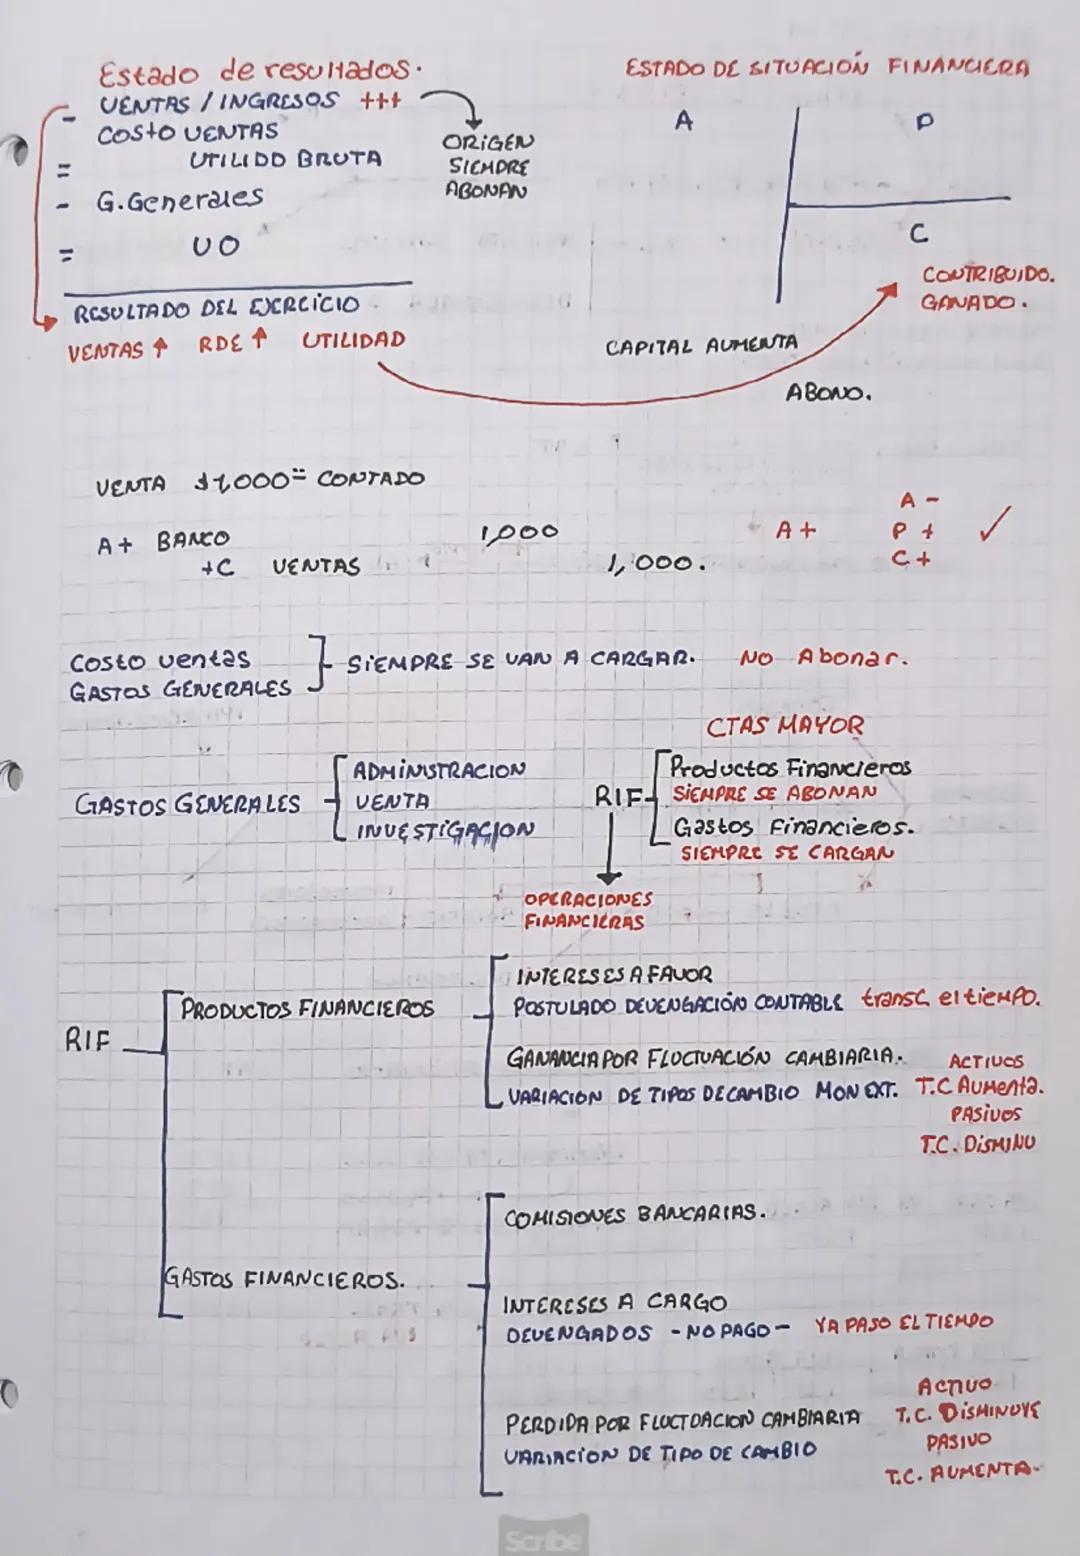 Estado de resultados.
- VENTAS / INGRESOS +++
COSTO VENTAS
= UTILIDD BRUTA
- G.Generales
= UO
RESULTADO DEL EJERCICIO
VENTAS ↑ RDE ↑ UTILIDAD
ORIGEN
SIEMPRE
ABONAN
ESTADO DE SITUACIÓN FINANCIERA
A P
C
CONTRIBUIDO.
GANADO.
CAPITAL AUMENTA
ABONO.
VENTA $1,000= CONTADO
A+ BANCO 1,000
+C VENTAS 1,000.
A -
A + P + ✓
C +
Costo ventas
GASTOS GENERALES
SIEMPRE SE VAN A CARGAR. NO Abonar.
GASTOS GENERALES
ADMINISTRACION
VENTA
INVESTIGACION
CTAS MAYOR
RIF
Productos Financieros
SIEMPRE SE ABONAN
Gastos Financieros.
SIEMPRE SE CARGAN
OPERACIONES
FINANCIERAS
RIF
PRODUCTOS FINANCIEROS
INTERESES A FAVOR
POSTULADO DEVENGACIÓN CONTABLE transc el tiempo.
GANANCIA POR FLUCTUACIÓN CAMBIARIA.
VARIACION DE TIPOS DE CAMBIO MON EXT.
ACTIVOS
T.C Aumenta.
PASIVOS
T.C. DISMINU
GASTOS FINANCIEROS.
COMISIONES BANCARIAS.
INTERESES A CARGO
DEVENGADOS - NO PAGO - YA PASO EL TIEMPO
PERDIDA POR FLUCTUACION CAMBIARIA
VARIACION DE TIPO DE CAMBIO
ACTIVO
T.C. DISMINUYE
PASIVO
T.C. AUMENTA-
Scribe